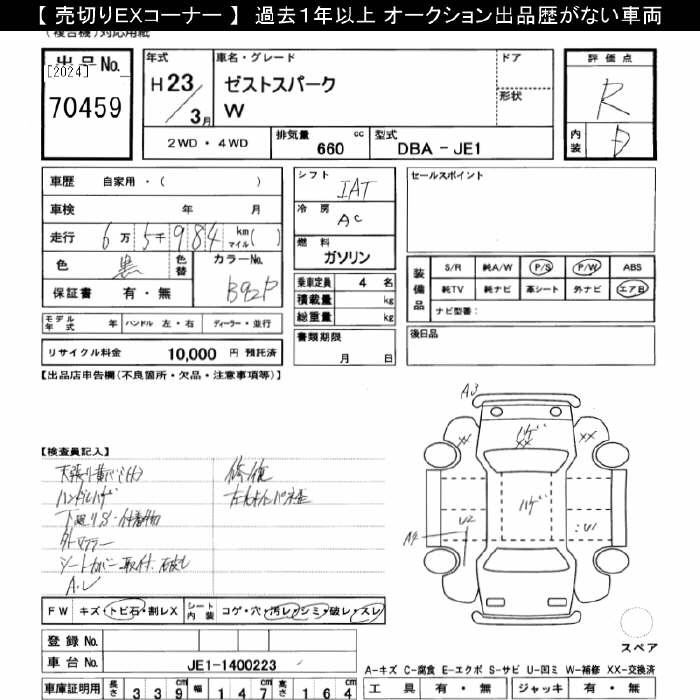 【 売切りEXコーナー 】 過去１年以上 オークション出品歴がない車両
(複合機)対応用紙
出品No.
[2024]
70459
年式
H23/3月
車名・グレード
ゼストスパーク
W
ドア
形状
評価点
R
内装
D
2WD・4WD
排気量 660 cc
型式 DBA - JE1
車歴 自家用・( )
車検 年 月
走行 6万5千984 km マイル( )
色 黒 色替
カラーNo. B92P
保証書 有・無
シフト IAT
冷房 AC
燃料 ガソリン
乗車定員 4 名
積載量 kg
総重量 kg
セールスポイント
装備品
S/R 純A/W P/S P/W ABS
純TV 純ナビ 革シート 外ナビ エアB
ナビ型番:
モデル年式 年 ハンドル 左・右 ディーラー・並行
リサイクル料金 10,000 円 預託済
書類期限
月 日
後日品
【出品店申告欄(不良箇所・欠品・注意事項等)】
【検査員記入】
修復
ハンドルハゲ
下廻りS・付着物
外マフラー
A.L
A3
ハゲ
XX
XX
XX
ハゲ
U2
A4
U1
FW キズ・トビ石・割レX
シート内装 コゲ・穴・汚レ・シミ・破レ・スレ
登録No.
車台No. JE1-1400223
車庫証明用 長さ 339cm 幅 147cm 高さ 164
スペア
A-キズ C-腐食 E-エクボ S-サビ U-凹ミ W-補修 XX-交換済
工具 有・無 ジャッキ 有・無